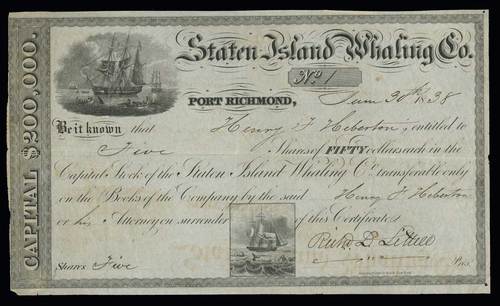 CAPITAL $200,000.
Staten Island Whaling Co.
No. 1
PORT RICHMOND, June 30th 1838
Be it known that Henry F Heberton is entitled to
Five Shares of FIFTY dollars each in the
Capital Stock of the Staten Island Whaling Co. transferable only
on the Books of the Company by the said Henry F Heberton
or his Attorney on surrender of this Certificate
Richd D. Littell
Shares Five Pres.